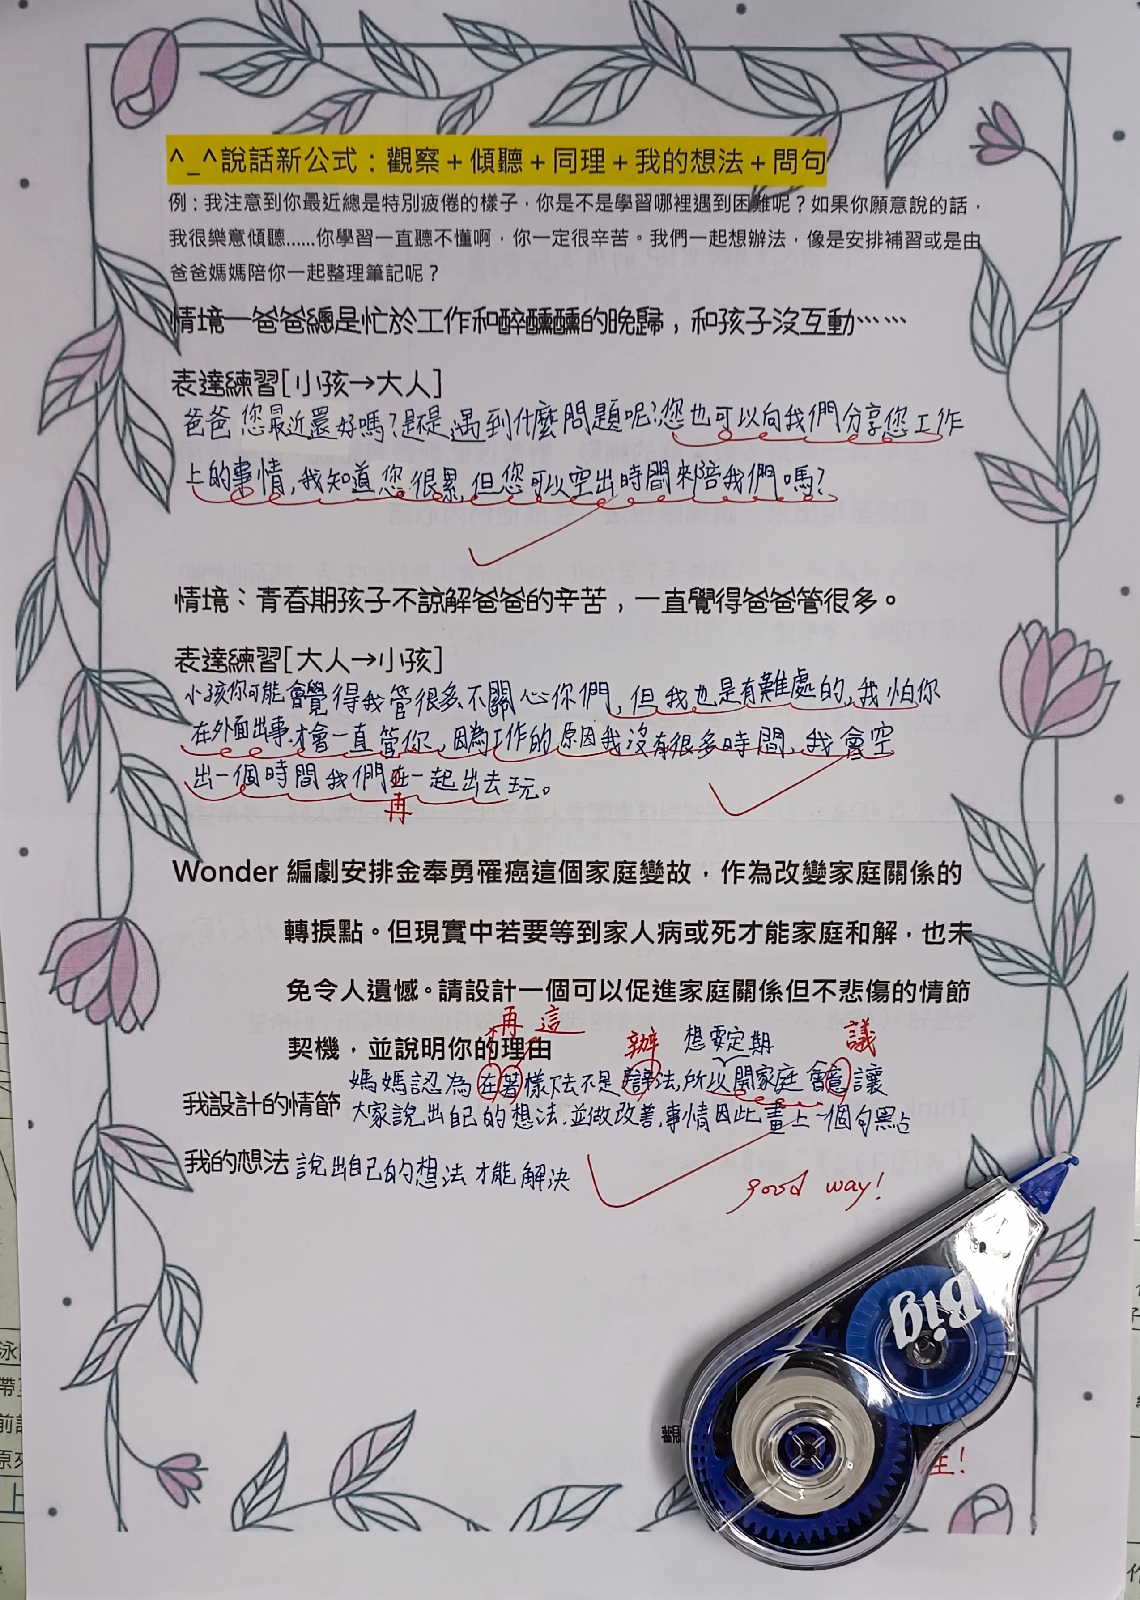 ^_^說話新公式：觀察＋傾聽＋同理＋我的想法＋問句
例：我注意到你最近總是特別疲倦的樣子，你是不是學習哪裡遇到困難呢？如果你願意說的話，
我很樂意傾聽……你學習一直聽不懂啊，你一定很辛苦。我們一起想辦法，像是安排補習或是由
爸爸媽媽陪你一起整理筆記呢？
情境—爸爸總是忙於工作和醉醺醺的晚歸，和孩子沒互動……
表達練習[小孩→大人]
爸爸您最近還好嗎?是不是遇到什麼問題呢?您也可以向我們分享您工作
上的事情,我知道您很累,但您可以空出時間來陪我們嗎?
情境：青春期孩子不諒解爸爸的辛苦，一直覺得爸爸管很多。
表達練習[大人→小孩]
小孩你可能會覺得我管很多不關心你們,但我也是有難處的,我怕你
在外面出事,才會一直管你,因為工作的原因我沒有很多時間,我會空
出一個時間我們在一起出去玩。
再
Wonder 編劇安排金奉勇罹癌這個家庭變故，作為改變家庭關係的
轉捩點。但現實中若要等到家人病或死才能家庭和解，也未
免令人遺憾。請設計一個可以促進家庭關係但不悲傷的情節
契機，並說明你的理由
再 這 辦 想要定期 議
我設計的情節 媽媽認為在著樣下去不是辯法,所以開家庭會意讓
大家說出自己的想法.並做改善,事情因此畫上一個句點
我的想法 說出自己的想法才能解決
good way!
Big